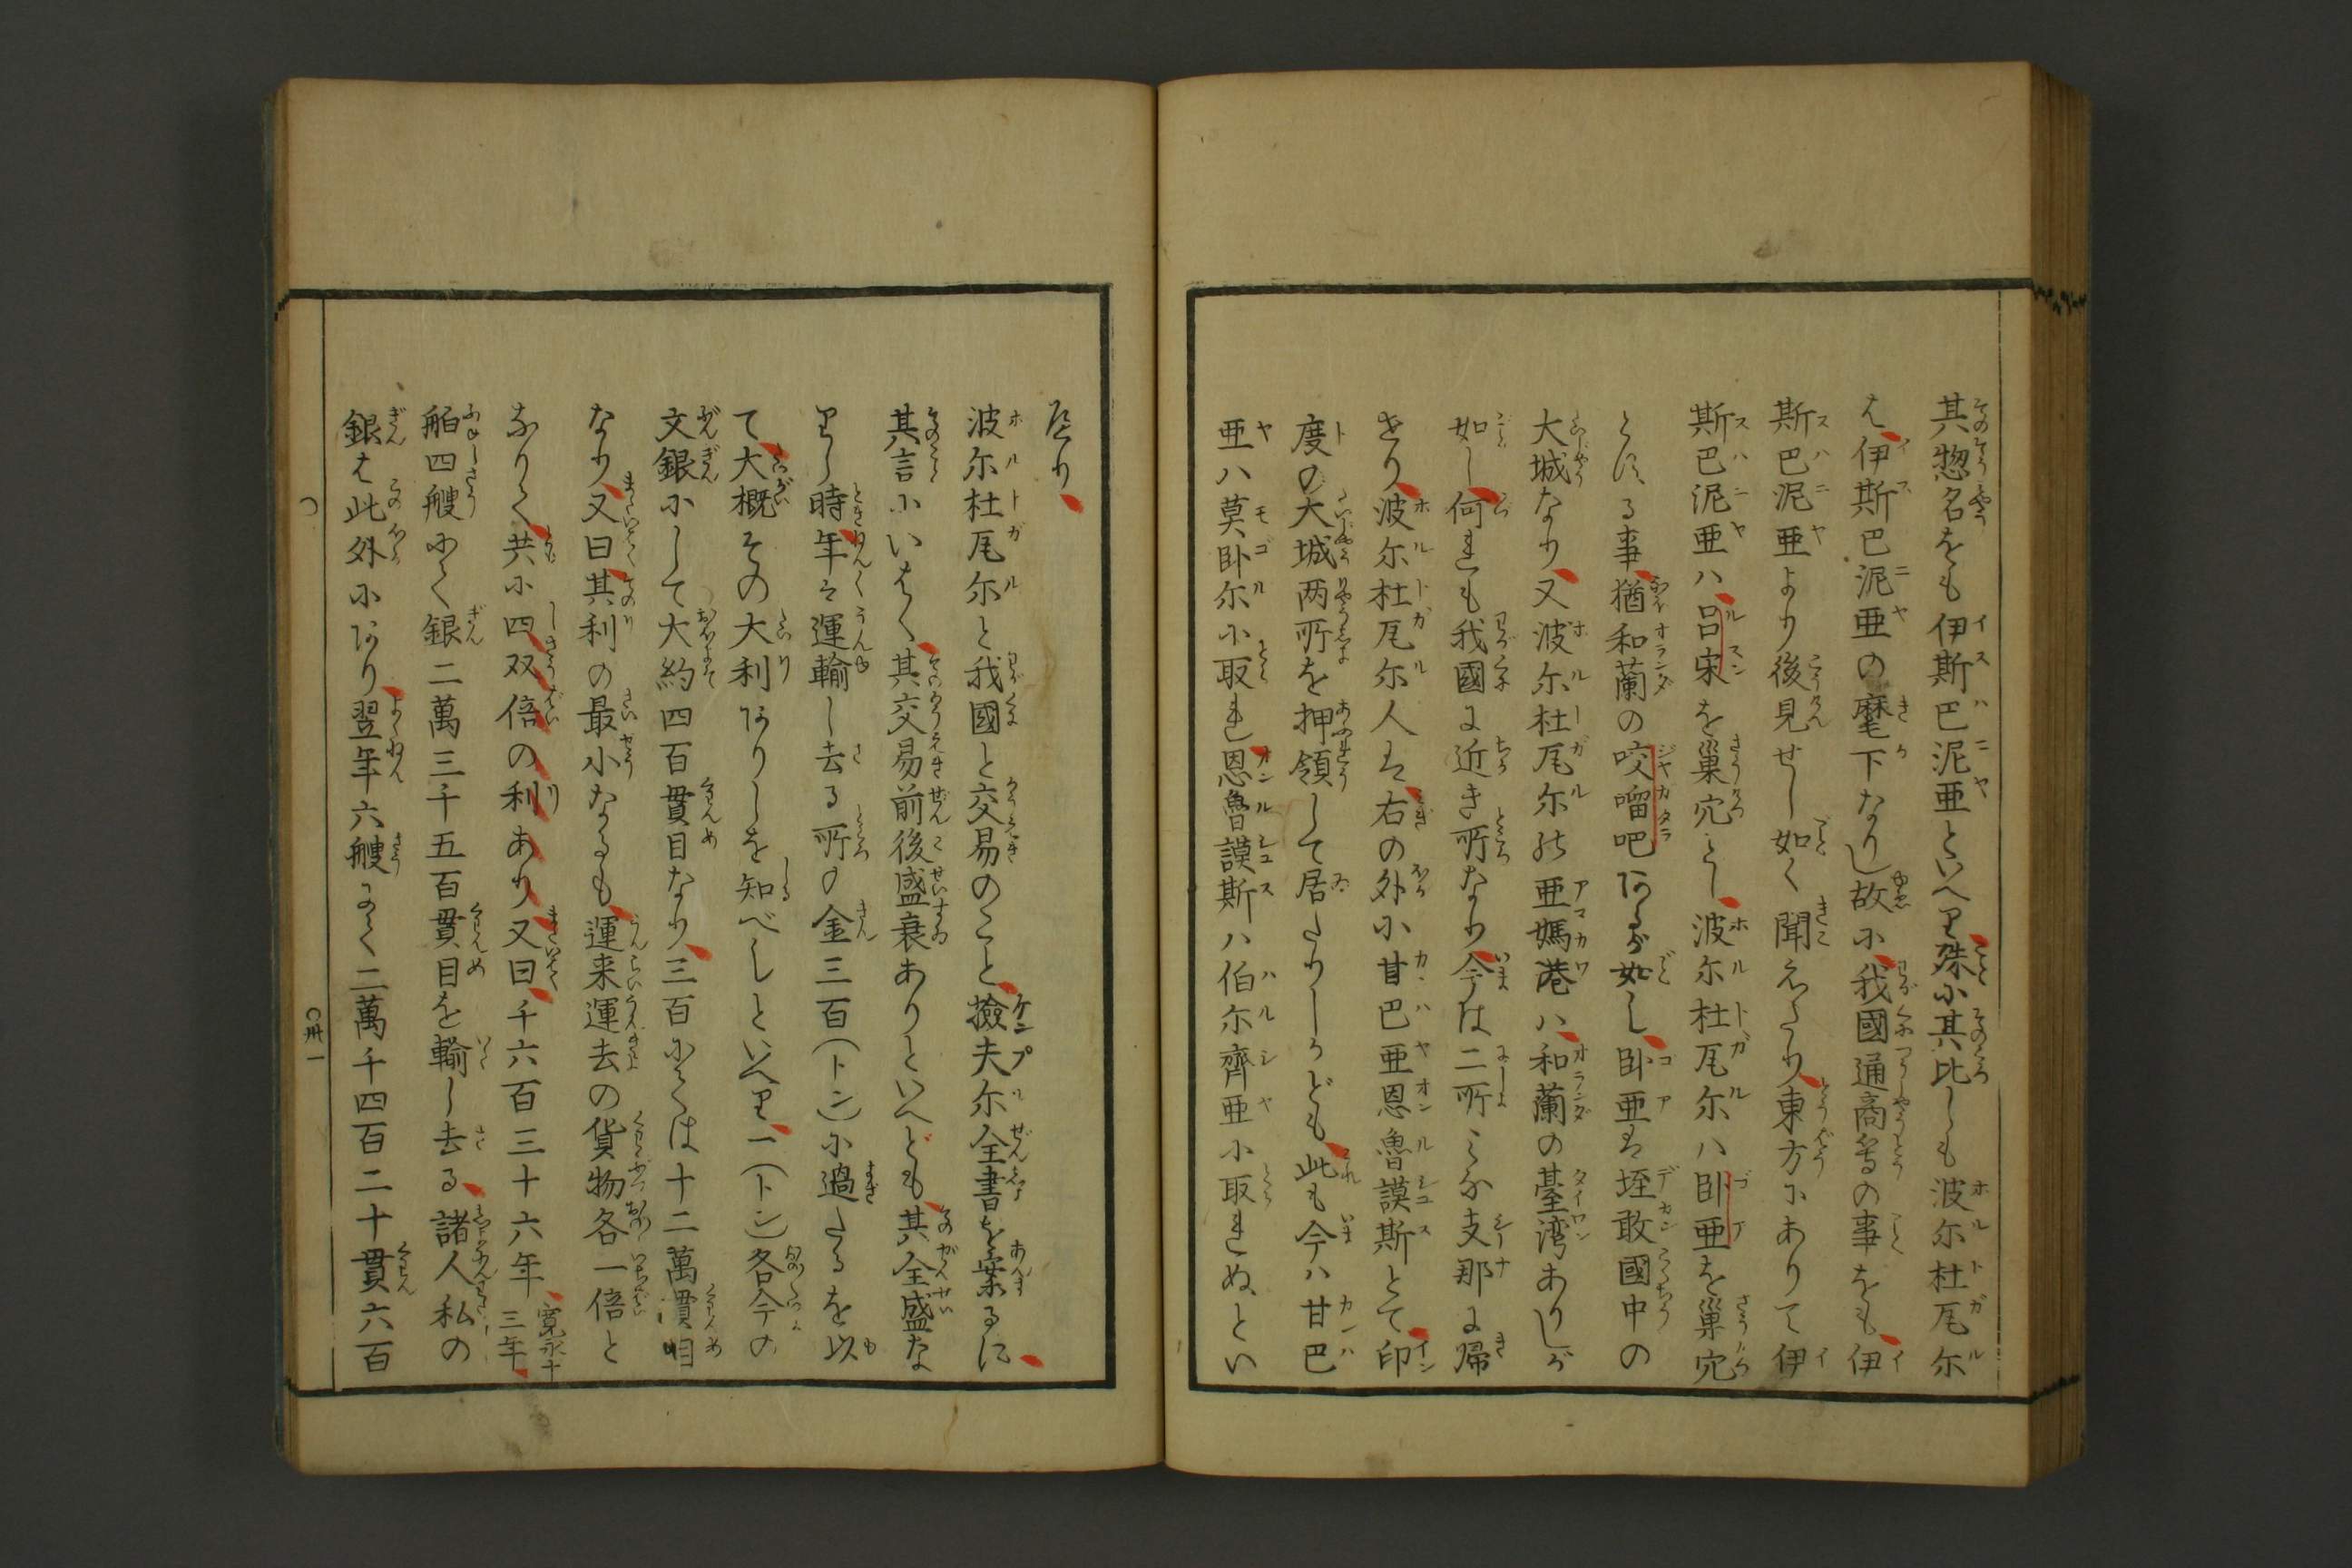 其惣名をも伊斯巴泥亜といへり殊に其比しも波尓杜瓦尓
は伊斯巴泥亜の麾下なりし故に我國通商等の事をも伊
斯巴泥亜より後見せし如く聞えたり東方にありて伊
斯巴泥亜ハ呂宋を巣穴とし波尓杜瓦尓ハ卧亜を巣穴
とせる事猶和蘭の咬𠺕吧あるが如し卧亜は埕敢國中の
大城なり又波尓杜瓦尓の亜媽港ハ和蘭の臺湾ありしが
如し何れも我國に近き所なり今は二所みな支那に帰
せり波尓杜瓦尓人は右の外に甘巴亜恩魯謨斯とて印
度の大城両所を押領して居たりしかども此も今ハ甘巴
亜ハ莫卧尓に取れ恩魯謨斯ハ伯尓齊亜に取れぬとい
へり
波尓杜瓦尓と我國と交易のこと撿夫尓全書を案るに
其言にいはく其交易前後盛衰ありといへども其全盛な
りし時年々運輸し去る所の金三百(トン)に過たるを以
て大概その大利ありしを知べしといへり一(トン)各今の
文銀にして大約四百貫目なり三百にては十二萬貫目
なり又曰其利の最小なるも運来運去の貨物各一倍と
なりて共に四双倍の利あり又曰千六百三十六年寛永十三年
舶四艘にて銀二萬三千五百貫目を輸し去る諸人私の
銀は此外にあり翌年六艘にて二萬千四百二十貫六百
〇卅一